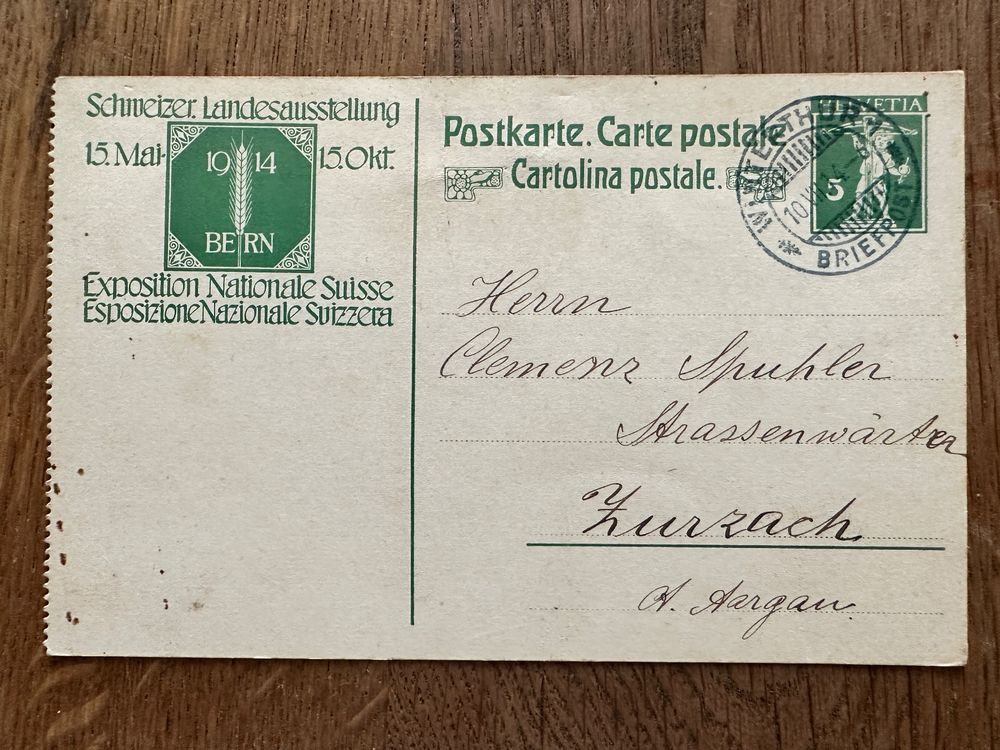 Schweizer. Landesausstellung
15. Mai- 19 14 15. Okt.
BERN
Exposition Nationale Suisse
Esposizione Nazionale Svizzera
Postkarte. Carte postale
Cartolina postale.
HELVETIA
5
WINTERTHUR 1
10.VII.14.-8
BRIEFPOST
Herrn
Clemenz Spuhler
Strassenwärter
Zurzach
Kt. Aargau.